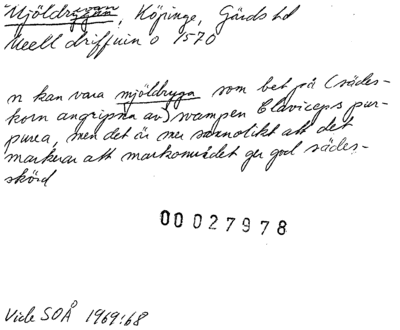 Mjöldrygan, Köpinge, Gärds hd
Meell driffuin o 1570
n kan vara mjöldryga som bet på (sädes-
korn angripna av) svampen Claviceps pur-
purea, men det är mer sannolikt att det
markerar att markområdet ger god sädes-
skörd
00027978
Vide SOÅ 1969:68